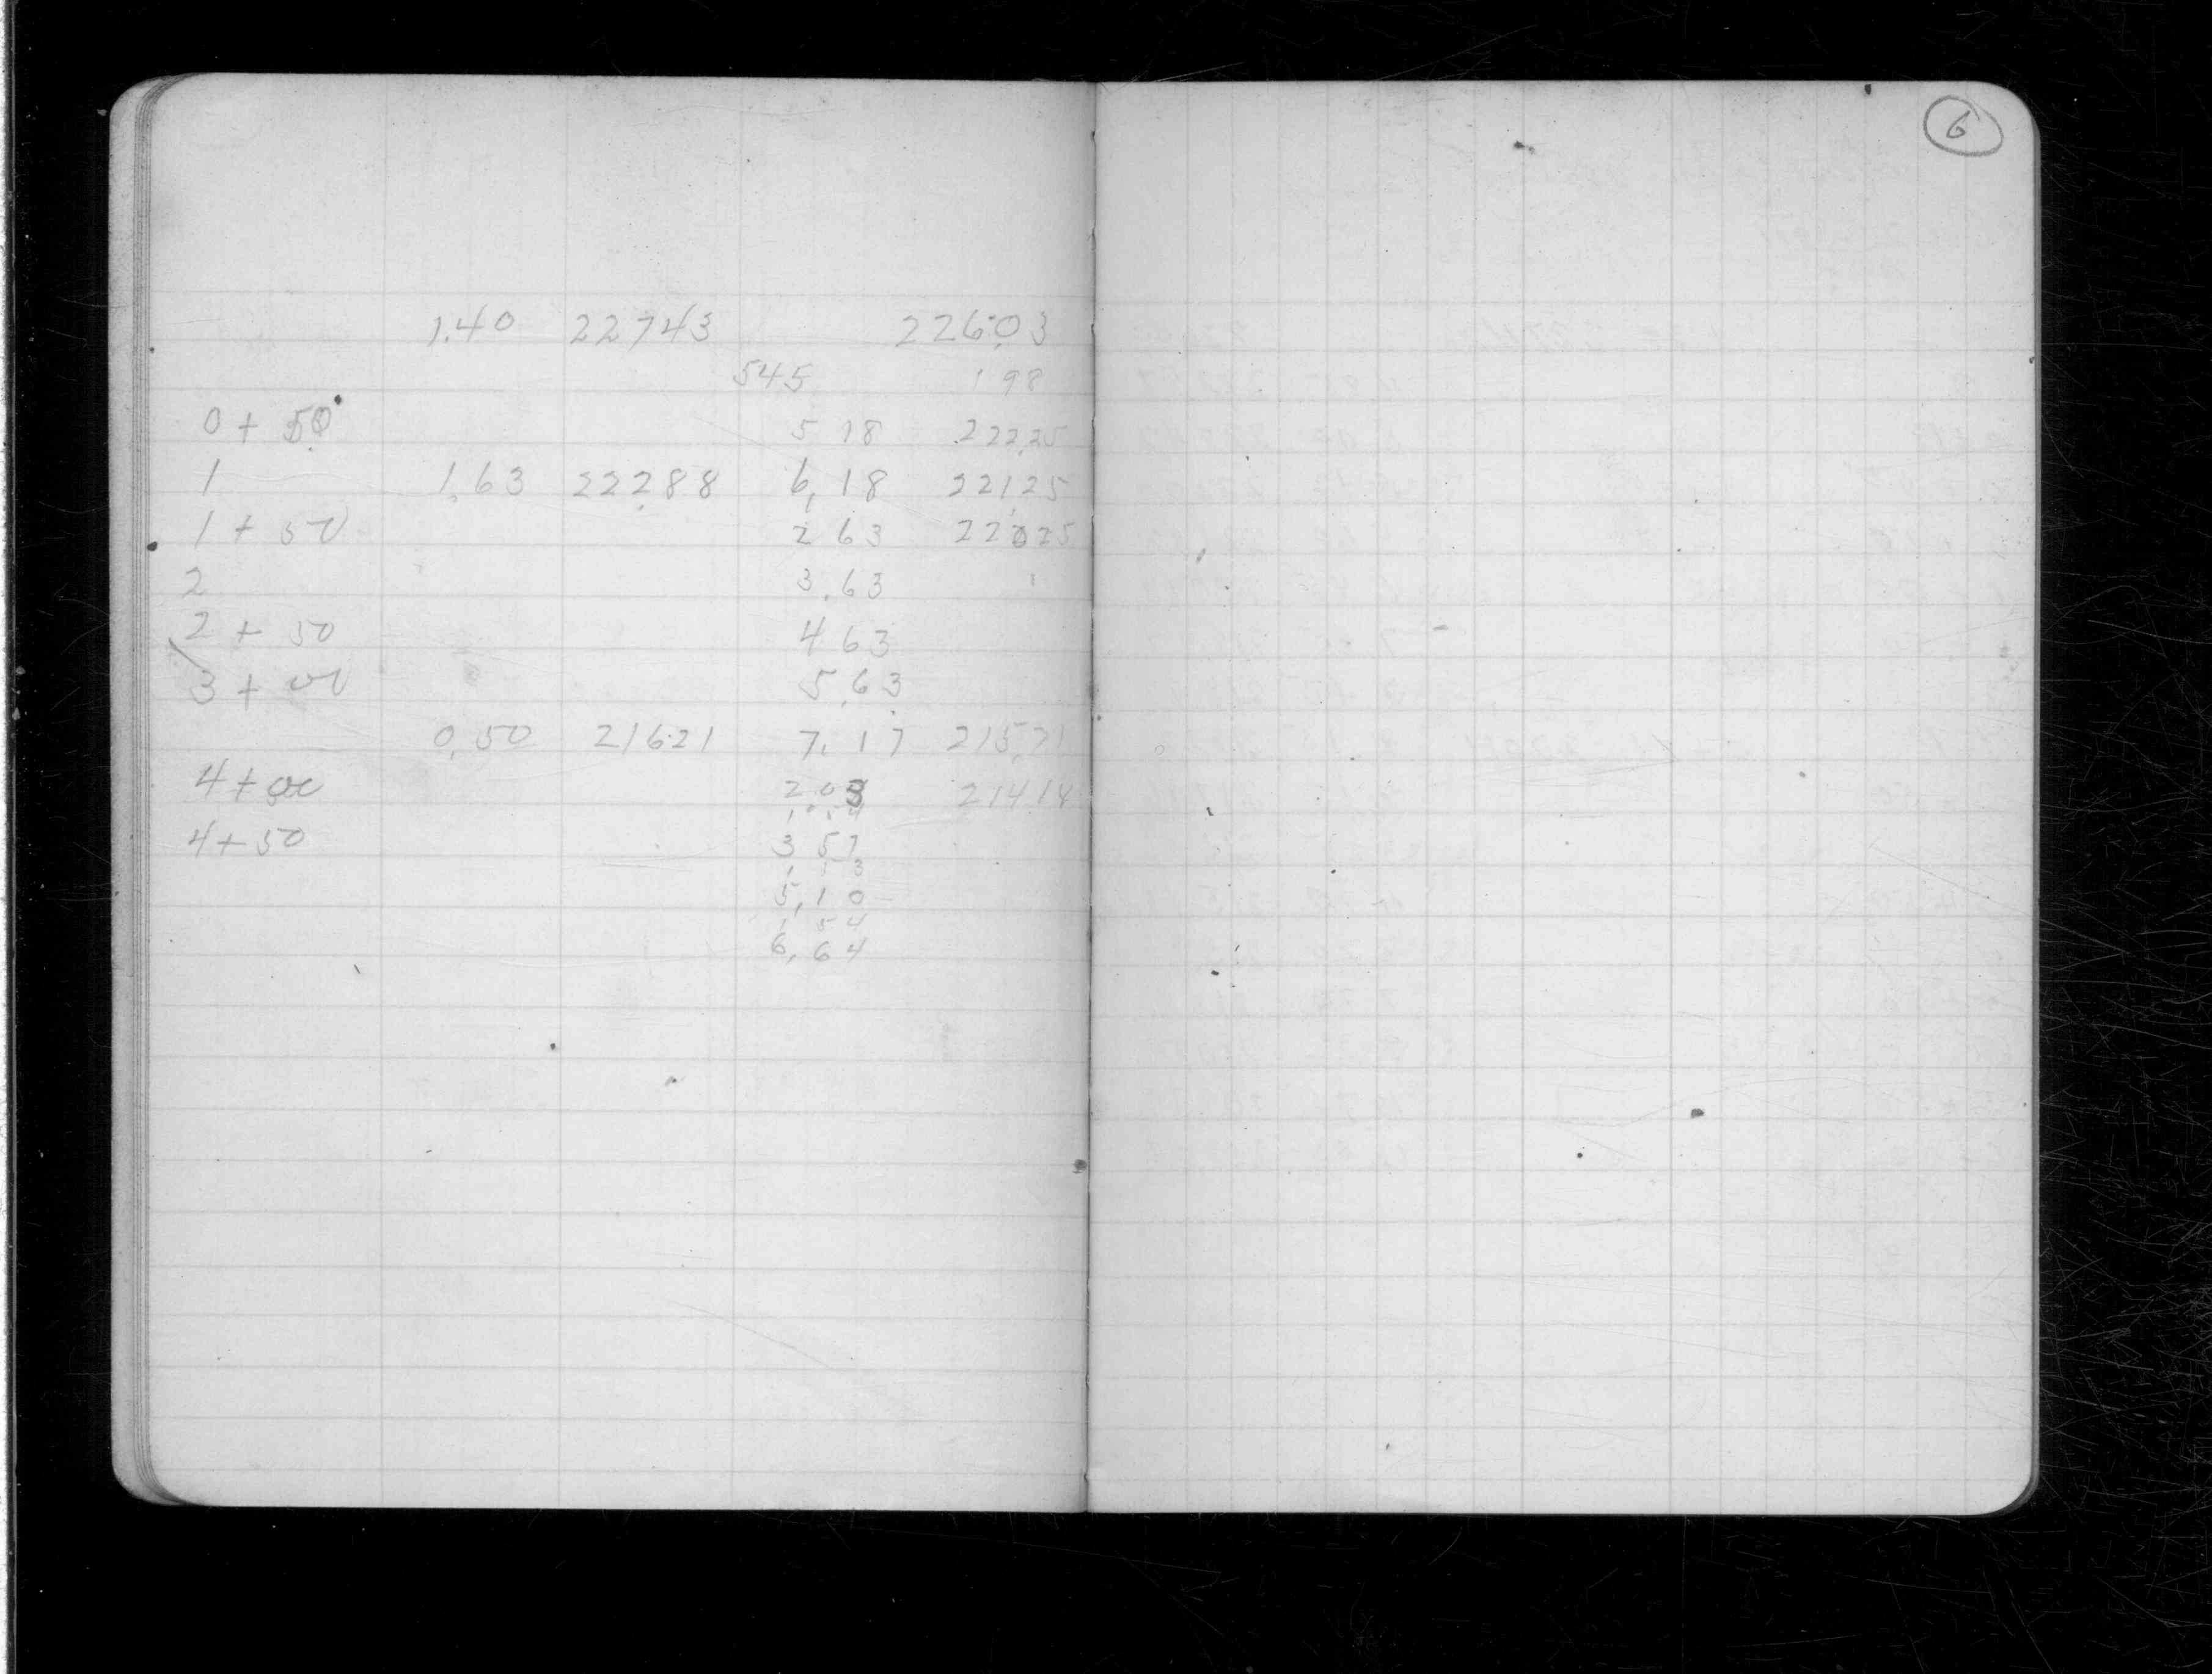 1.40 22743 22603
545 198
0 + 50 5 18 222.25
1 1.63 22288 6,18 22125
1 + 50 2 63 22025
2 3.63
2 + 50 4 63
3 + 00 5.63
0.50 21621 7.17 21571
4 + 00 2.03 21418
4 + 50 3 57
5,10
1 54
6,64
6